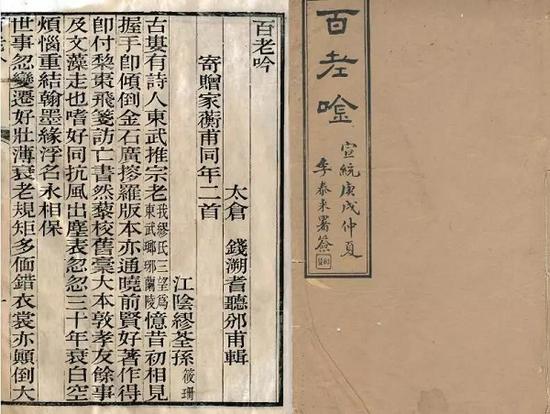 百老唫
宣統庚戌仲夏
李泰来署簽
百老吟
太倉 錢溯耆聽邠甫輯
寄贈家蘅甫同年二首
江陰繆荃孫 筱珊
古婁有詩人東武推宗老 我繆氏三望爲東武瑯琊蘭陵 憶昔初相見
握手卽傾倒金石廣摉羅版本亦通曉前賢好著作得
卽付棃棗飛箋訪亡書然藜校舊槀大本敦孝友餘事
及文藻走也嗜好同抗風出塵表忽忽三十年衰白空
煩惱重結翰墨緣浮名永相保
世事忽變遷好壯薄衰老規矩多偭錯衣裳亦顚倒大